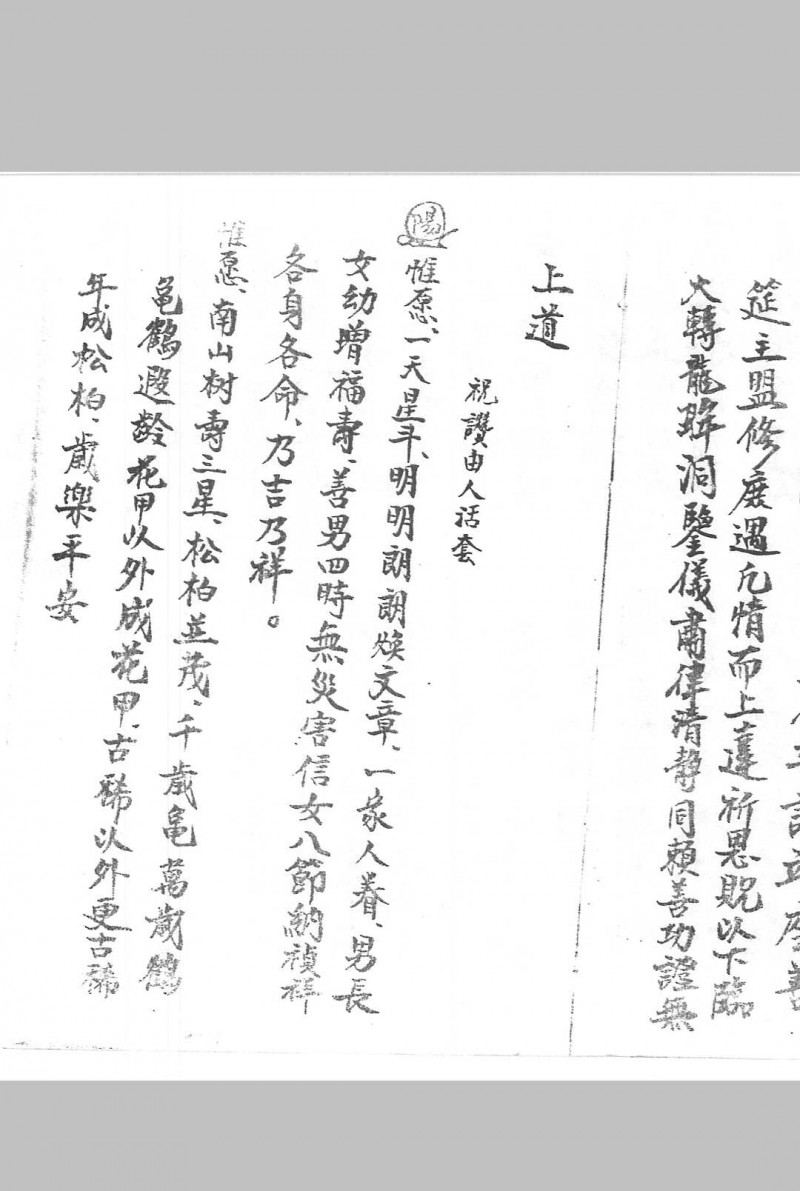 筵主盟修㢙遇凡情而上達祈恩貺以下臨
大轉龍眸洞鑒儀肅律清静同頼善功證無
上道
祝讃由人活套
陽
惟愿、一天星斗、明明朗朗焕文章、一家人眷、男長
女幼增福壽、善男四時無災害信女八節納禎祥
各身各命、乃吉乃祥。
惟愿、南山树壽三星、松柏並茂、千歲亀萬歲鶴
亀鶴遐龄花甲以外成花甲、古稀以外更古稀
年成松柏、歲樂平安